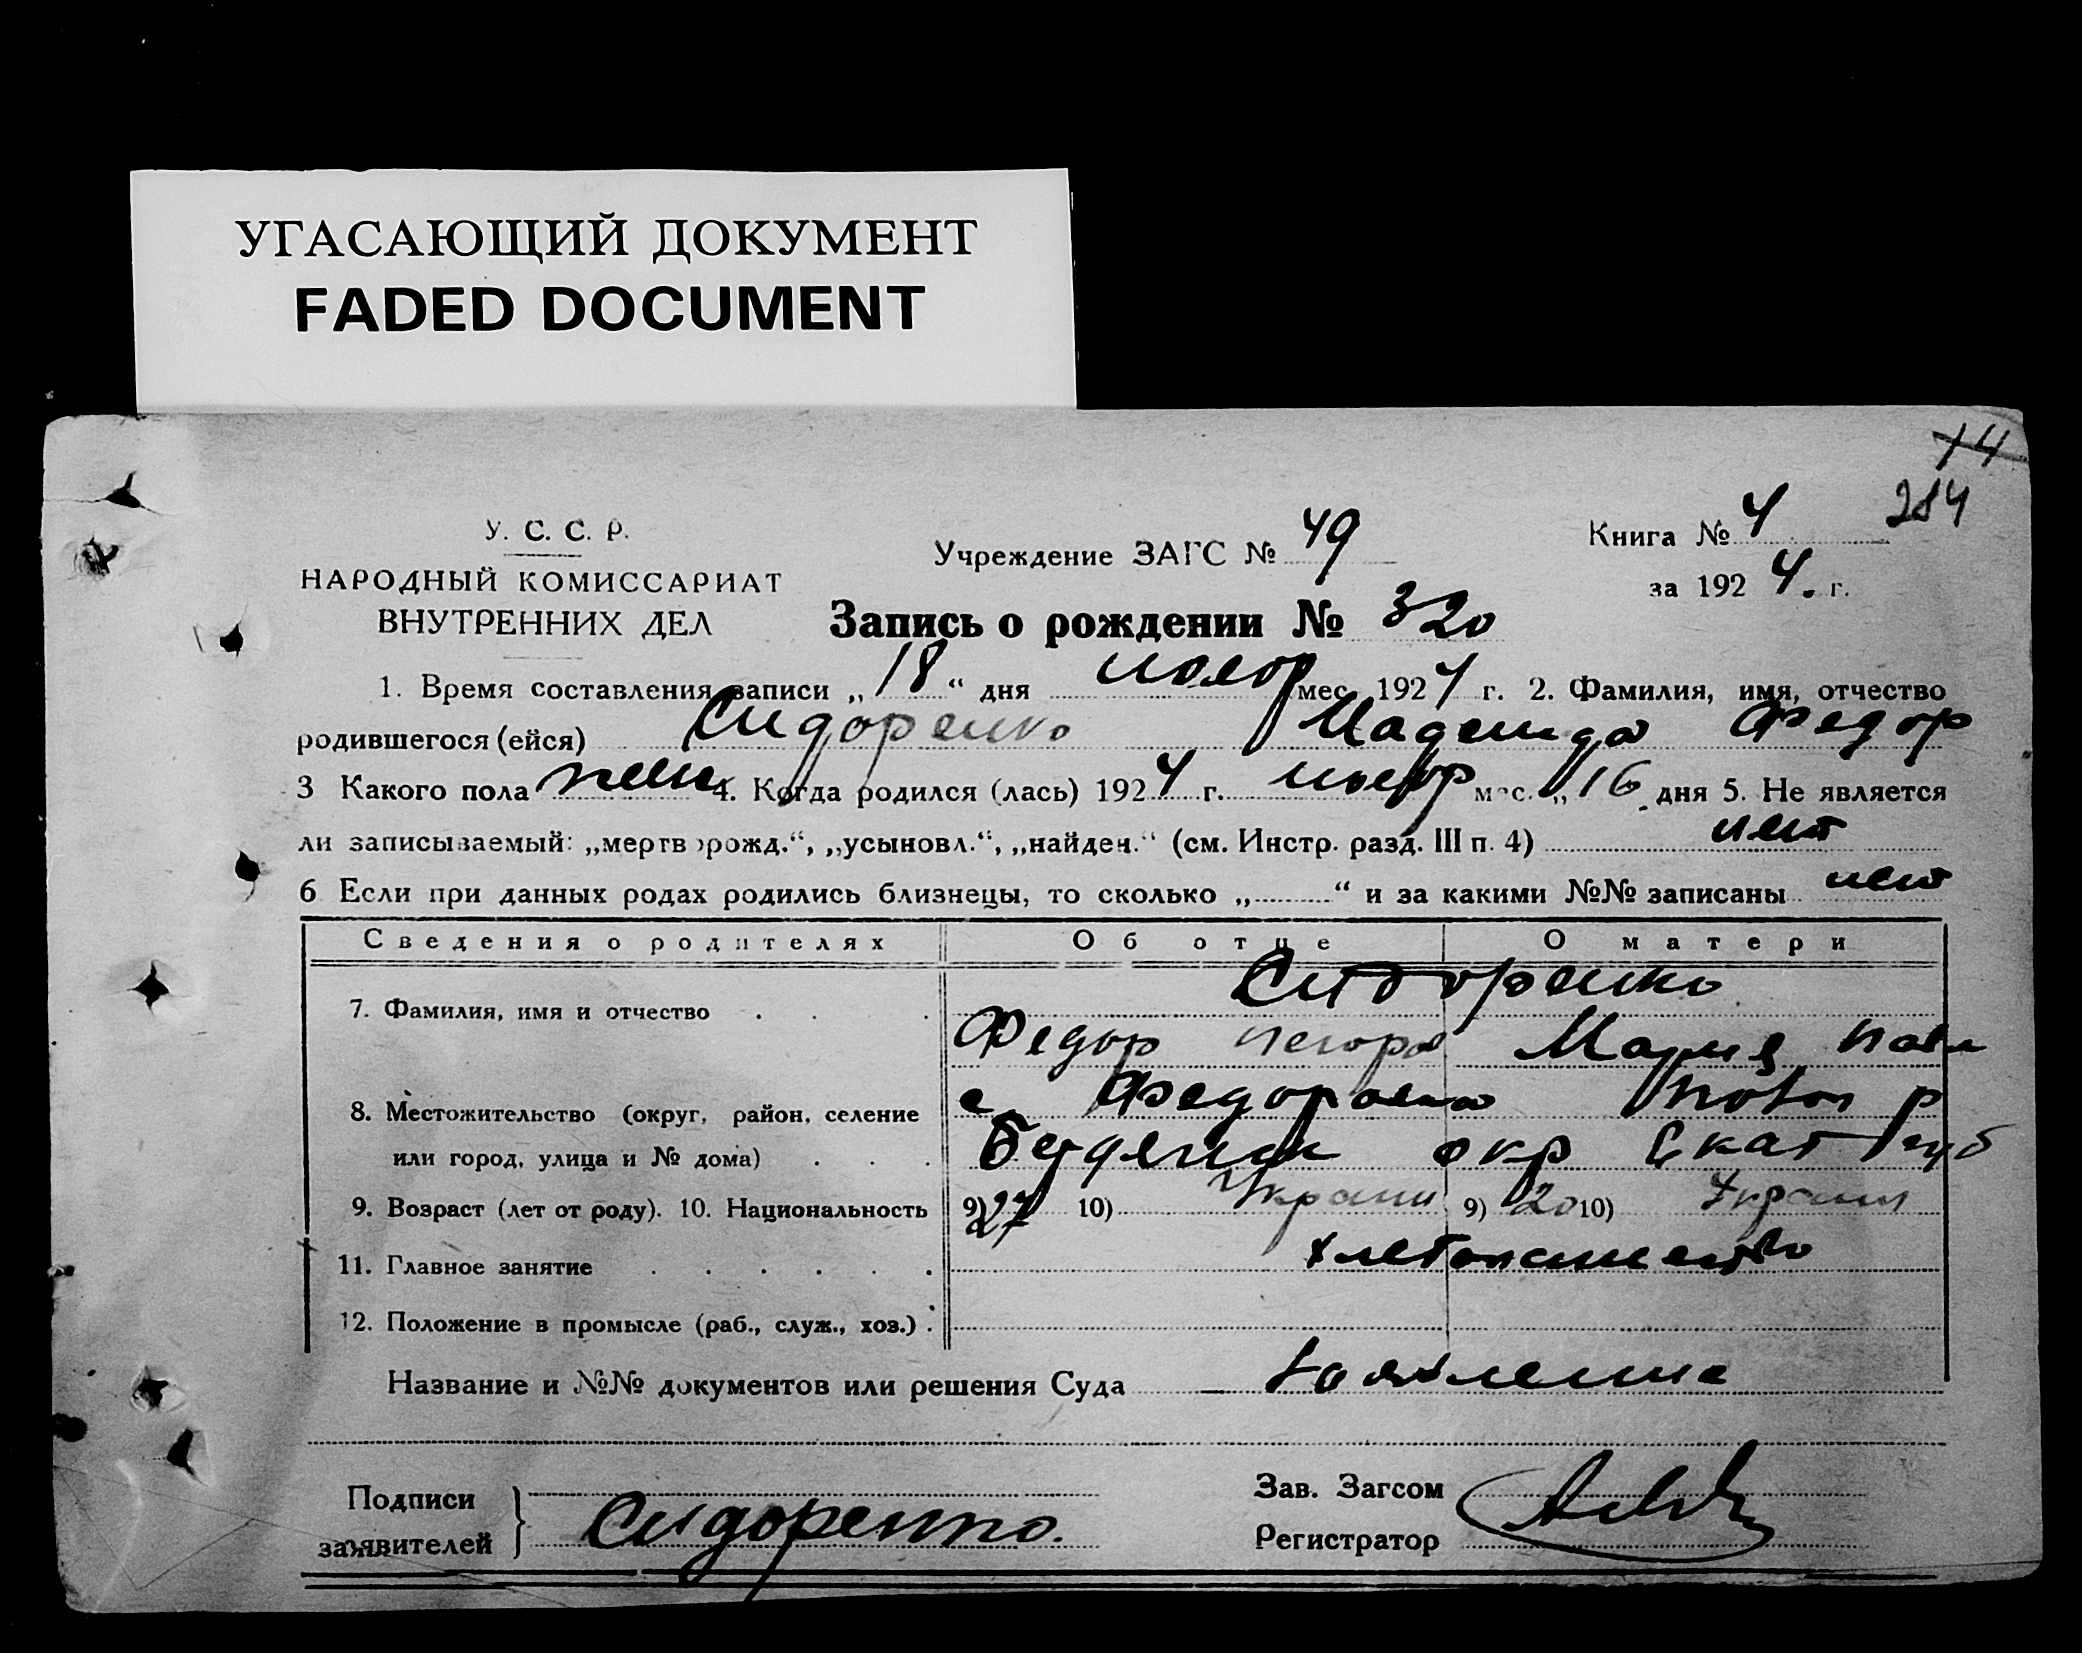 УГАСАЮЩИЙ ДОКУМЕНТ
FADED DOCUMENT
14
284
У. С. С. Р.
НАРОДНЫЙ КОМИССАРИАТ
ВНУТРЕННИХ ДЕЛ
Учреждение ЗАГС № 49
Книга № 4
за 1924. г.
Запись о рождении № 320
1. Время составления записи „18“ дня ноябр мес. 1924 г. 2. Фамилия, имя, отчество
родившегося (ейся) Сидоренко Надежда Федор
3 Какого пола жен 4. Когда родился (лась) 1924 г. ноябр мес. „16 дня 5. Не является
ли записываемый: „мертворожд.“, „усыновл.“, „найден.“ (см. Инстр. разд. III п. 4) нет
6 Если при данных родах родились близнецы, то сколько „ “ и за какими №№ записаны нет
Сведения о родителях Об отце О матери
7. Фамилия, имя и отчество Сидоренко
Федор Мария Павл
8. Местожительство (округ, район, селение с Федоровка р
или город, улица и № дома) Бердянск окр Екат губ
9. Возраст (лет от роду). 10. Национальность 9) 27 10) Украин 9) 20 10) Украин
11. Главное занятие хлебопашество
12. Положение в промысле (раб., служ., хоз.)
Название и №№ документов или решения Суда — заявление
Подписи
заявителей } Сидоренко.
Зав. Загсом
Регистратор